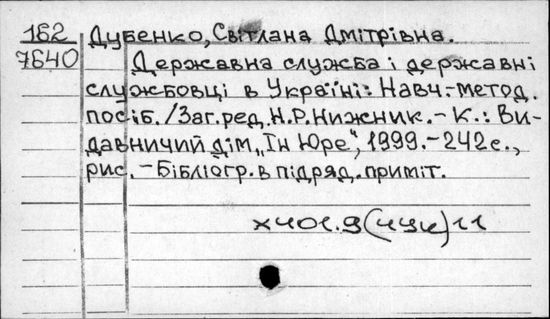 162 Дубенко, Світлана Дмітрівна.
7640 Державна служба і державні
службовці в Україні: Навч.-метод.
посіб./Заг.ред. Н.Р.Нижник.-К.: Ви-
давничий дім „Ін Юре", 1999.-242с.,
рис.-Бібліогр. в підряд. приміт.
х401.9(4Ук)11